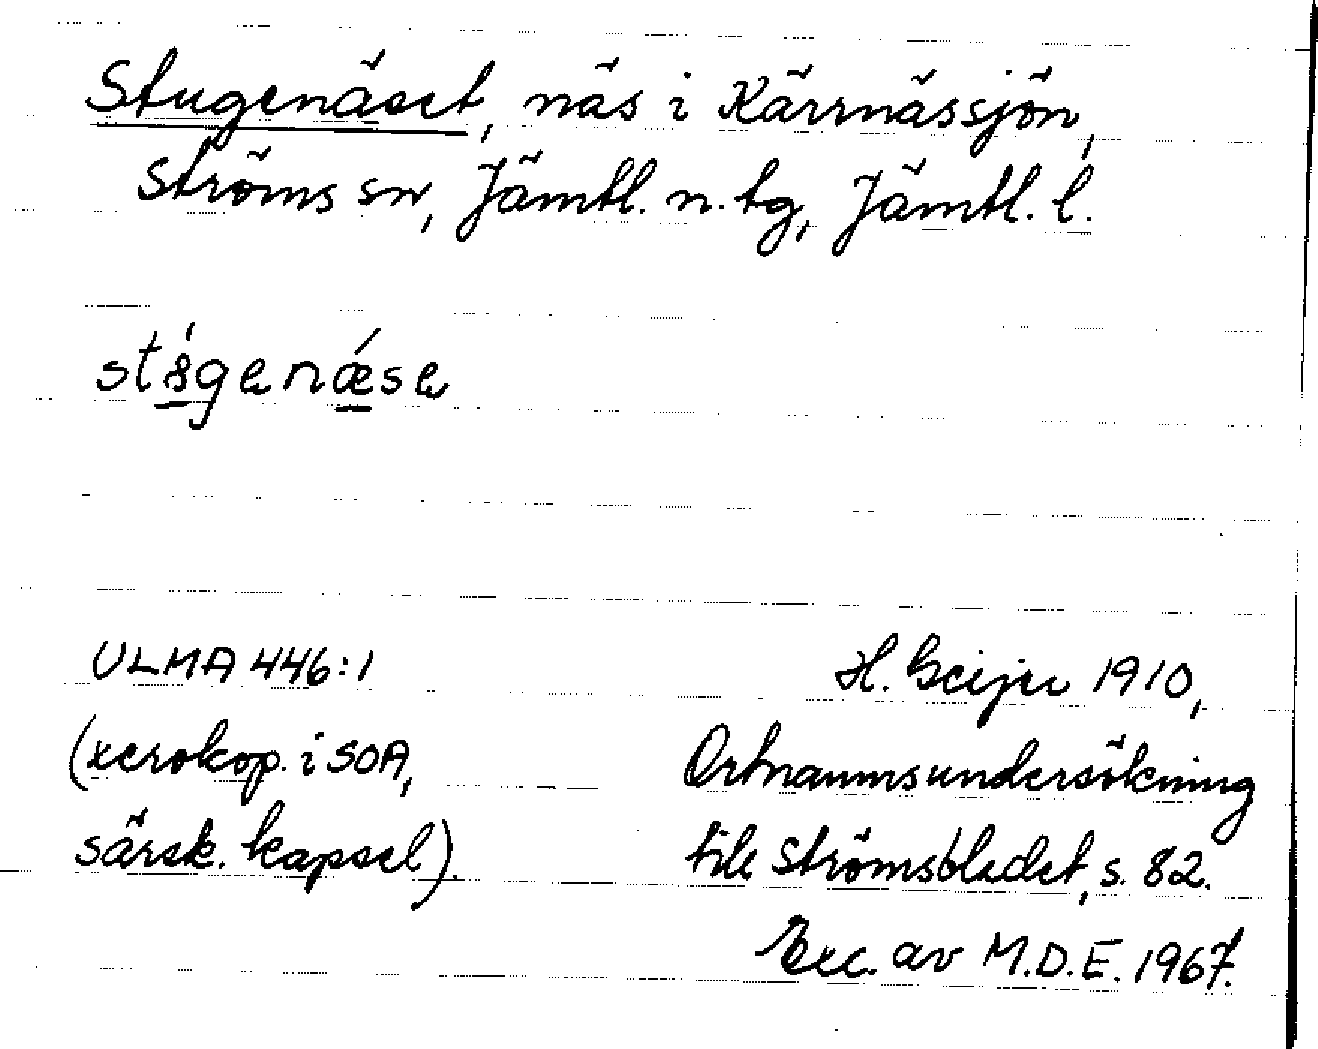 Stugenäset, näs i Kärrnässjön,
Ströms sn, Jämtl. n. tg, Jämtl. l.
ULMA 446:1
(xerokop. i SOA,
särsk. kapsel).
H. Geijer 1910,
Ortnamnsundersökning
till Strömsbladet, s. 82.
Exc. av M.D.E. 1967.